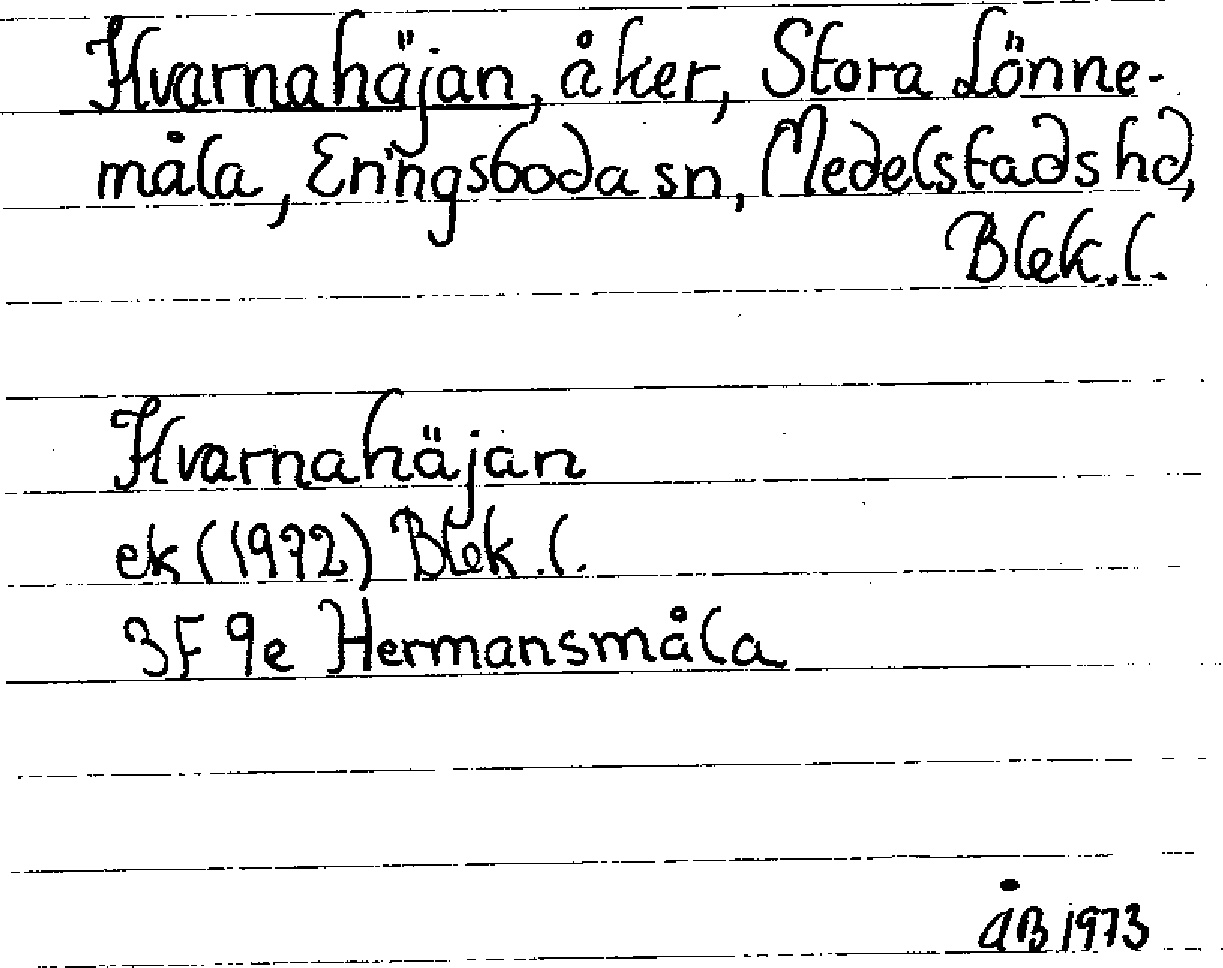 Kvarnahäjan, åker, Stora Lönne-
måla, Eringsboda sn, Medelstads hd,
Blek. l.
Kvarnahäjan
ek (1972) Blek. l.
3F 9e Hermansmåla
ÅB 1973